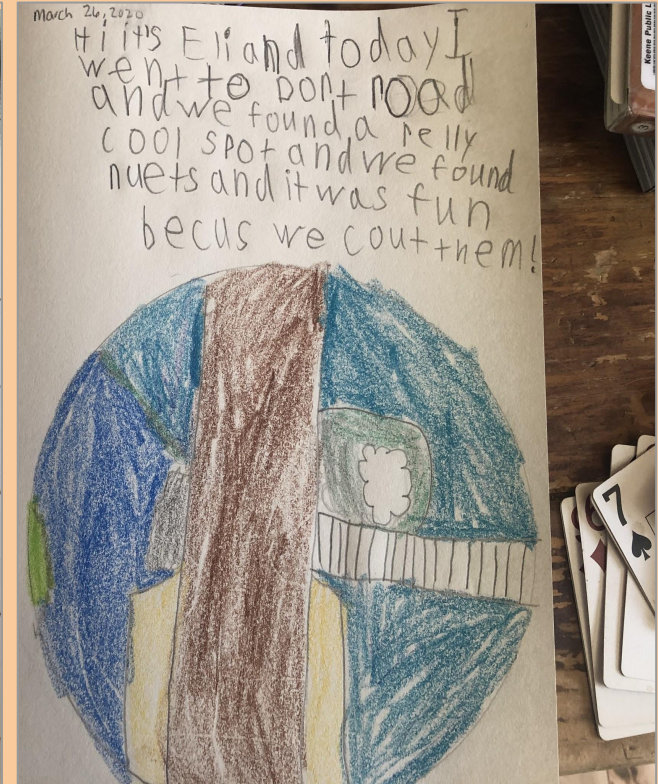 March 26, 2020
Hi it's Eli and today I
went to pont rood
and we found a relly
cool spot and we found
nuets and it was fun
becus we cout them!
Keene Public L
7